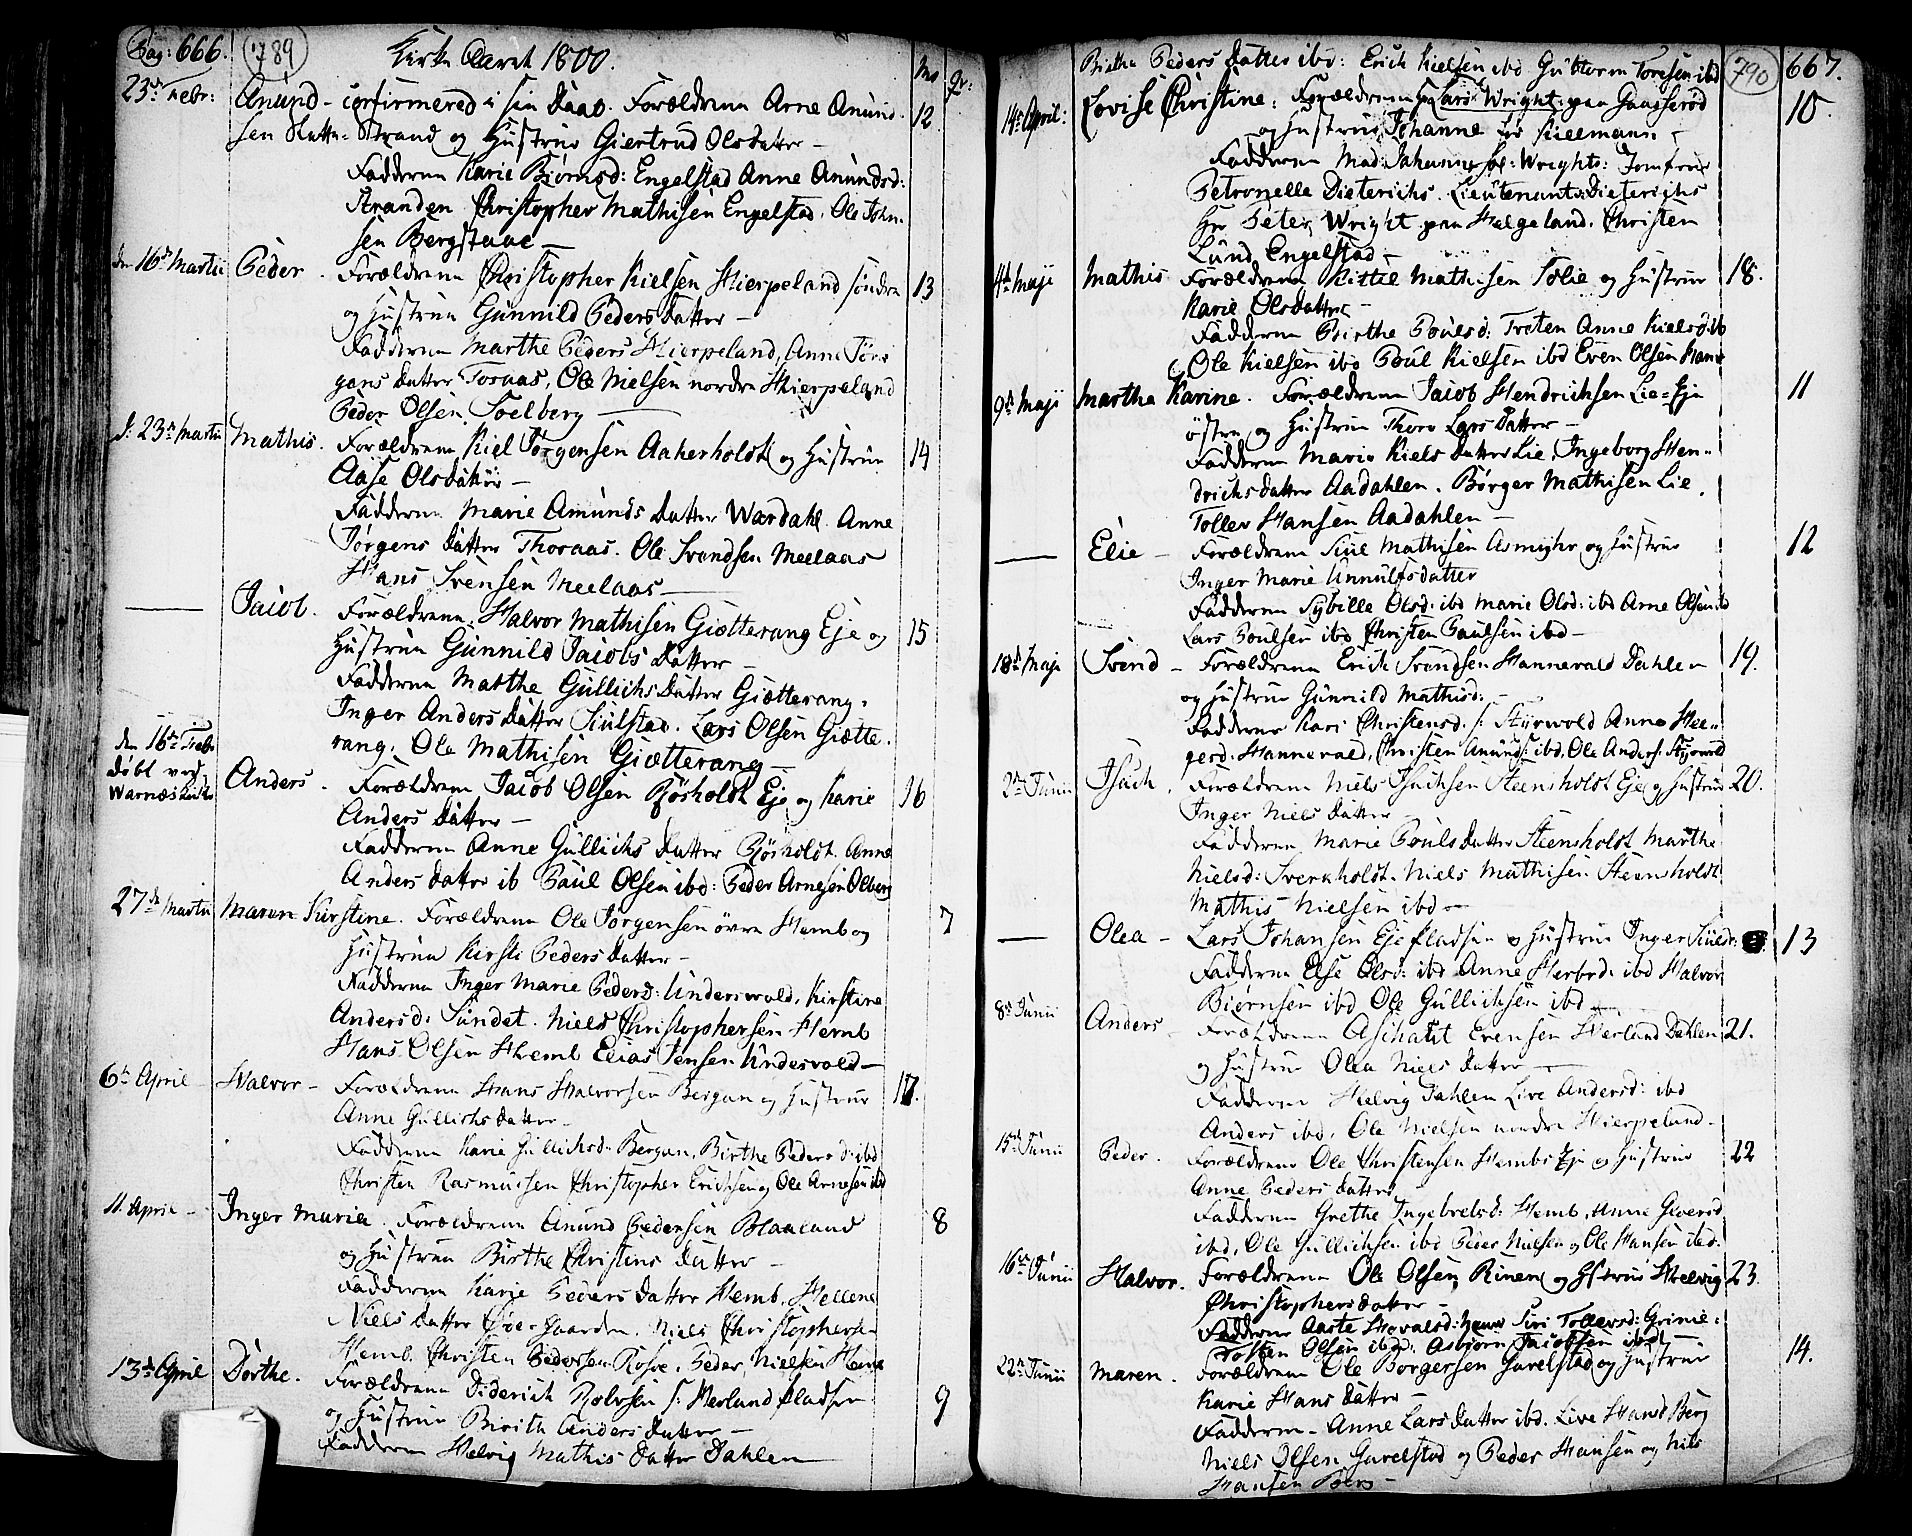 Pag: 666. 789 Kirke Aaret 1800. Mo qv:
23de Febr: Anund - confirmered i sin Daab. Forældrene Arne Anund- 12
sen Strand og Hustrue Giertrud Olsdatter -
Fadderne Karie Biørnsd: Engelstad Anne Anundsd:
Stranden Christopher Mathisen Engelstad, Ole John-
sen
den 16de Martii Peder. Forældrene Christopher Kielsen Hierpeland søndre 13
og Hustrue Gunnild Peders datter -
Fadderne Marthe Peders Hierpeland, Anne Jør-
gens datter Toraas, Ole Nielsen nordre Hierpeland
Peder Olsen Soelberg
d: 23de Martii Mathis. Forældrene Kiel Jørgensen Aaherholdt og Hustrue 14
Aase Olsdatter -
Fadderne Marie Amunds datter Wardahl Anne
Jørgens datter Thoraas. Ole Svendsen Meelaas
Hans Svensen Meelaas -
— Jacob. Forældrene Halvor Mathisen Giøtterang Eje og 15
Hustrue Gunnild Jacobs datter -
Fadderne Marthe Gullichs datter Giøtterang.
Inger Anders datter Kiulstad. Lars Olsen Giøtte-
rang. Ole Mathisen Giøtterang -
den 16de Febr
døbt ved
Warnæs Anders. Forældrene Jacob Olsen Bøsholdt Eje og Karie 16
Anders datter -
Fadderne Anne Gullichs datter Bøsholdt. Anne
Anders datter ib Paul Olsen ibd: Peder Arnesen Olberg
27de Martii Maren Kirstine. Forældrene Ole Jørgensen øvre Hemb og 7
Hustrue Kirsti Peders datter -
Fadderne Inger Marie Pedersd: Underswold, Kirstine
Andersd: Sundet. Niels Christophersen Hemb
Hans Olsen Hemb Elias Jensen Undersvold -
6te April Halvor - Forældrene Hans Halvorsen Bergan og Hustrue 17.
Anne Gullichs datter -
Fadderne Karie Gullichsd: Bergan, Birthe Pedersd: ibd
Christen Rasmussen Christopher Erichsen og Ole Arnesen ibd
11. April - Inger Maria. Forældrene Anund Pedersen Blaaland 8
og Hustrue Birthe Christens datter -
Fadderne Karie Peders datter Hemb, Hellene
Niels datter Øde-gaarden. Niels Christophersen
Hemb. Christen Pedersen Rosve. Peder Nielsen Hemb
13de April Dorthe. Forældrene Diderich Rolvsen s: Herland Pladsen 9
og Hustrue Birith Anders datter -
Fadderne Helvig Mathis datter Dahlen
Birthe Peders datter ibd: Erich Kielsen ibd Guttorm Toresen ibd 790 667.
14de April: Lovise Christine: Forældrene Hr Lars Wright paa Gaasserød 10.
og Hustrue Johanne Kielmann -
Fadderne Mad: Johanne Wrights: Jomfrue
Petronelle Dieterichs. Lieutenant Dieterichs
Hr Peter Wright paa Helgeland. Christen
Lund Engelstad -
4de Maji Mathis Forældrene Kittel Mathisen Solie og Hustrue 18.
Karie Olsdatter -
Fadderne Birthe Poulsd: Treten Anne Kielsd ib
Ole Kielsen ibd Poul Kielsen ibd Even Olsen
9de Maji Martha Karine. Forældrene Jacob Hendrichsen Lie Eje 11
østre og Hustrue Thore Lars datter -
Fadderne Marie Kiels datter Lie, Ingeborg Hen-
drichs datter Aadahlen. Børger Mathisen Lie.
Tollev Hansen Aadahlen -
— Elie - Forældrene Kiil Mathisen Asmyhr og Hustrue 12
Inger Marie Unnulfsdatter
Fadderne Sybille Olsd: ibd Marie Olsd: ibd Arne Olsen ibd
Lars Poulsen ibd Christen Paulsen ibd -
18de Maji Svend - Forældrene Erich Svendsen Hannevald Dahlen 19.
og Hustrue Gunnild Mathisd: -
Fadderne Kari Christensd. s: Styrwold Anne Hee-
gerd: Hannevald, Christen Anunds: ibd, Ole Anders:
2de Junii Isach. Forældrene Niels Isachsen Steensholdt Eje og Hustrue 20.
Inger Niels datter
Fadderne Marie Pouls datter Steensholdt Marthe
Nielsd: Svenholdt. Niels Mathisen Steensholdt
Mathis Nielsen ibd -
— Olea - Lars Johansen Eje Pladsen og Hustrue Inger Kiilsd: 13
Fadderne Else Olsd: ibd Anne Herbrd: ibd Halvor
Biørnsen ibd Ole Gullichsen ibd
8de Junii Anders - Forældrene Aschatil Evensen Herland Dahlen 21.
og Hustrue Olea Niels datter -
Fadderne Helvig Dahlen Live Andersd: ibd
Anders ibd, Ole Nielsen nordre Hierpeland.
15de Junii Peder. Forældrene Ole Christensen Hembs Eje og Hustrue 22
Anne Peders datter
Fadderne Grethe Ingebretsd: Hemb, Anne Giversd
ibd, Ole Gullichsen ibd Peder Nielsen og Ole Hansen ibd:
16de Junii Halvor. Forældrene Ole Olsen Rinen og Hustrue Helvig 23.
Christophers datter -
Fadderne Aaste Hovalsd: Siri Tollevsd: Grimie:
Tosten Olsen ibd: Asbiørn Jacobsen ibd -
22de Junii Maren. Forældrene Ole Borgersen Gavelstad og Hustrue 14.
Karie Hans datter -
Fadderne - Anne Lars datter ibd. Live Hansd Berg
Niels Olsen Gavelstad og Peder Hansen og Nils
Hansen Berg -